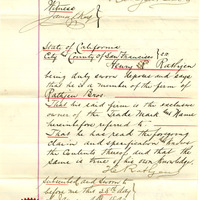 Witness
State of California
City & County of San Francisco } ss
Henry Rathjen
being duly sworn deposes and says
that he is a member of the firm of
Rathjen Bros
That his said firm is the exclusive
owner of the Trade Mark and Name
hereinbefore referred to
That he has read the foregoing
claim and specification and knows
the Contents thereof and that the
same is true of his own knowledge
H. Rathjen
Subscribed and sworn to
before me this 22 day